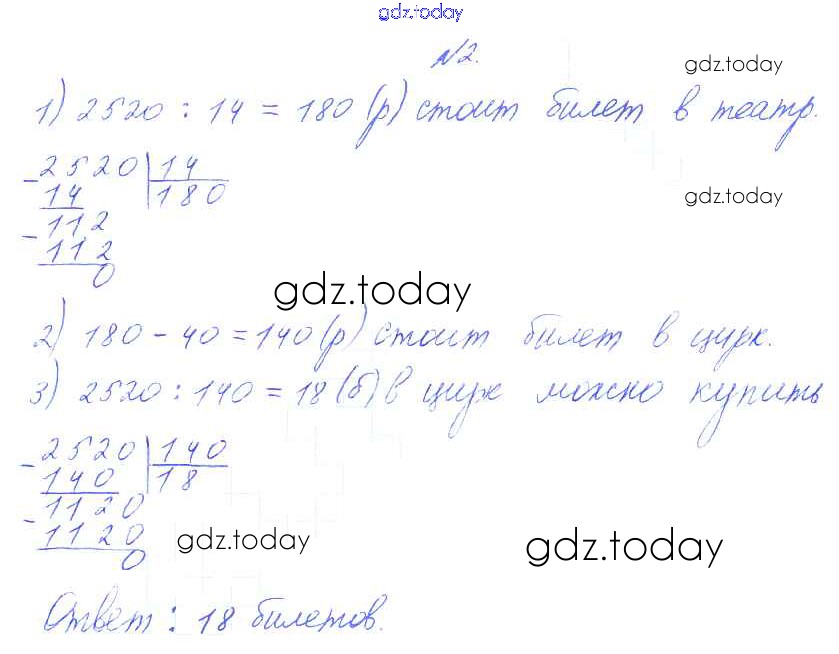 gdz.today
№2.
gdz.today
1) 2520 : 14 = 180 (р) стоит билет в театр.
- 2520 | 14
14 | 180
gdz.today
- 112
112
0
gdz.today
2) 180 - 40 = 140 (р) стоит билет в цирк.
3) 2520 : 140 = 18 (б) в цирк можно купить
- 2520 | 140
140 | 18
- 1120
1120
0
gdz.today
gdz.today
Ответ: 18 билетов.